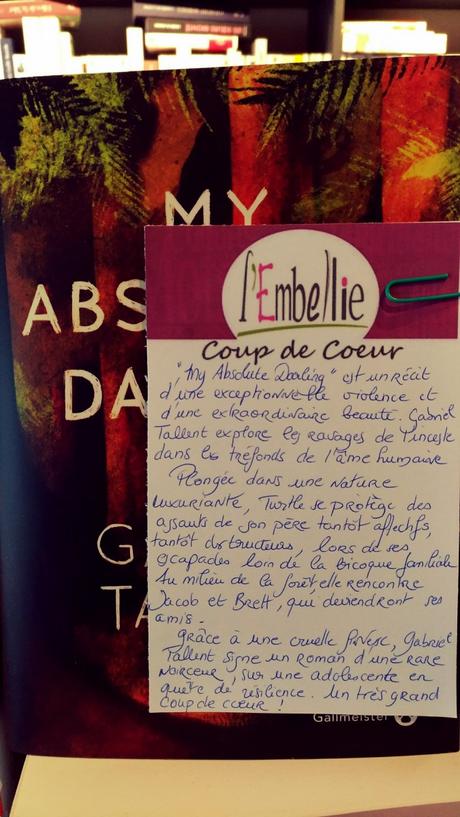 MY
ABS
DA
G
TA
l'Embellie
Coup de Coeur
"My Absolute Darling" est un récit
d'une exceptionnelle violence et
d'une extraordinaire beauté. Gabriel
Tallent explore les ravages de l'inceste
dans les tréfonds de l'âme humaine
Plongée dans une nature
luxuriante, Turtle se protège des
assauts de son père tantôt affectifs,
tantôt destructeurs, lors de ses
escapades loin de la bicoque familiale
Au milieu de la forêt, elle rencontre
Jacob et Brett, qui deviendront ses
amis.
Grâce à une cruelle prose, Gabriel
Tallent signe un roman d'une rare
noirceur, sur une adolescente en
quête de résilience. Un très grand
Coup de cœur !
Gallmeister